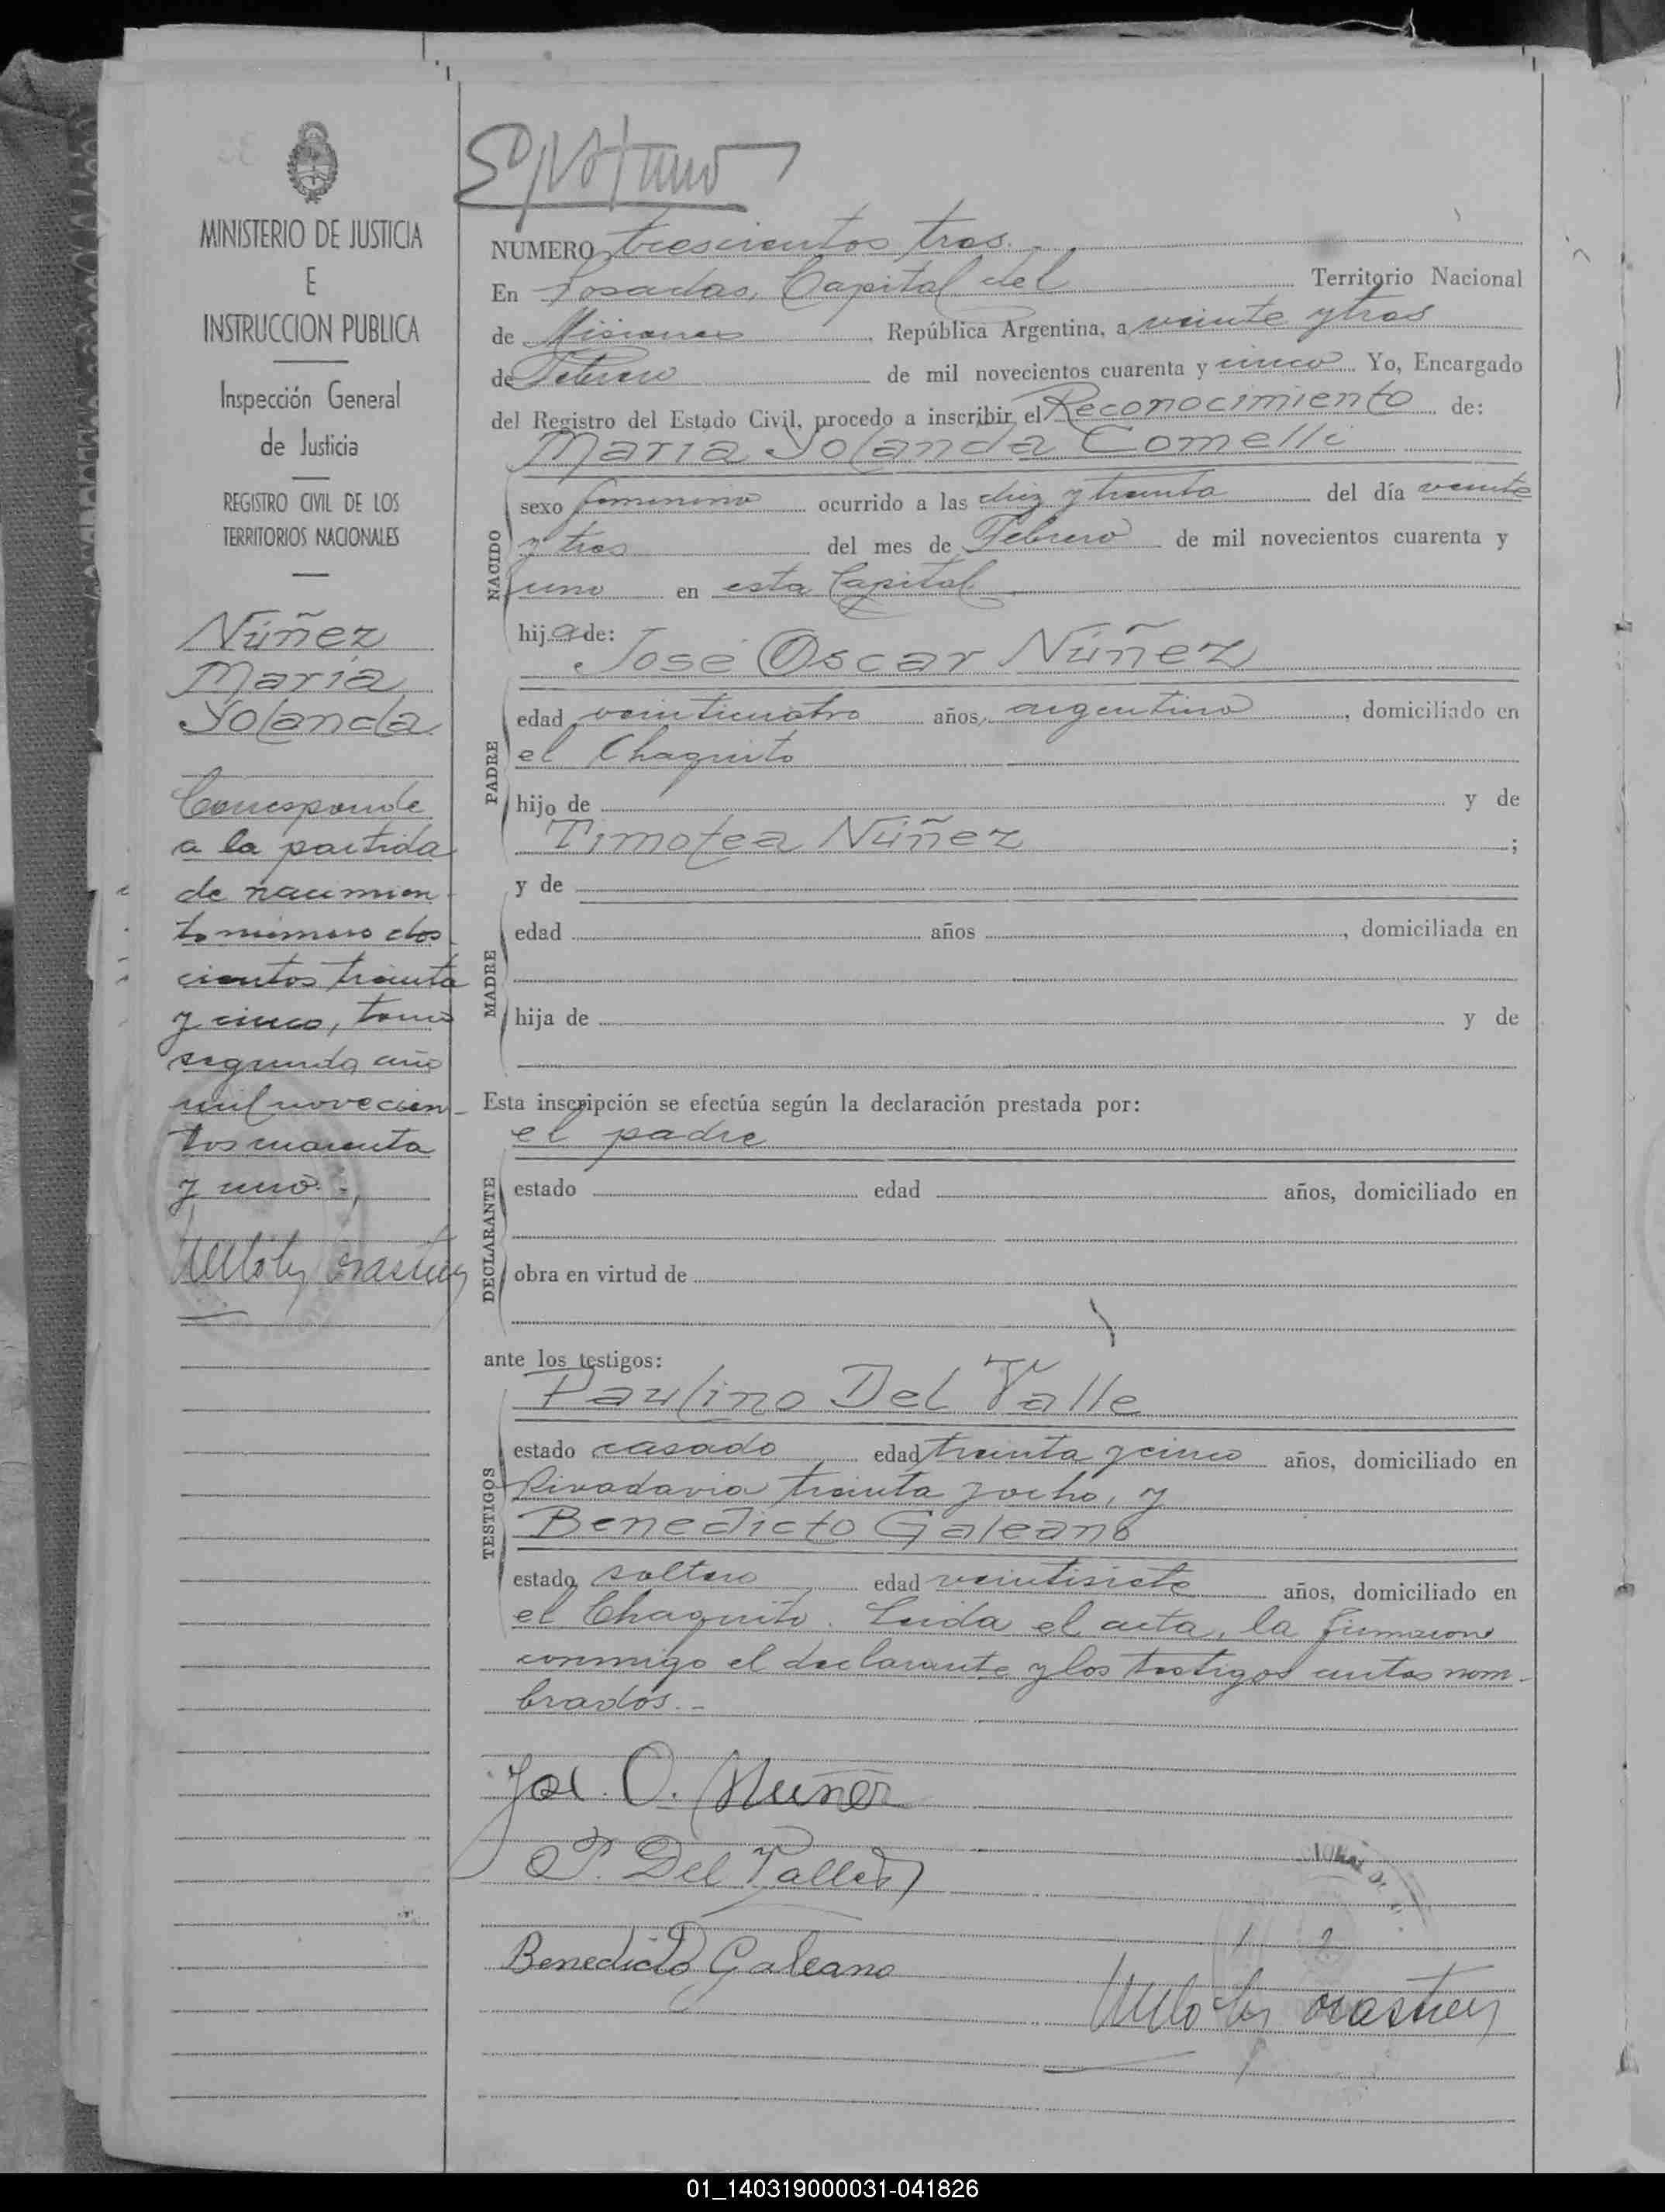 MINISTERIO DE JUSTICIA
E
INSTRUCCION PUBLICA
Inspección General
de Justicia
REGISTRO CIVIL DE LOS
TERRITORIOS NACIONALES
Núñez
María
Yolanda
Corresponde
a la partida
de nacimien-
to número dos
cientos treinta
y cinco, tomo
segundo, año
mil novecien-
tos cuarenta
y uno.-
NUMERO trescientos tres.-
En Posadas, Capital del Territorio Nacional
de Misiones, República Argentina, a veinte y tres
de Febrero de mil novecientos cuarenta y cinco Yo, Encargado
del Registro del Estado Civil, procedo a inscribir el Reconocimiento de:
María Yolanda Comelli
NACIDO
sexo femenino ocurrido a las diez y treinta del día veinte
y tres del mes de Febrero de mil novecientos cuarenta y
uno en esta Capital
hija de:
José Oscar Núñez
PADRE
edad veinticuatro años, argentino, domiciliado en
el Chaquito
hijo de y de
Timotea Núñez ;
y de
MADRE
edad años , domiciliada en
hija de y de
Esta inscripción se efectúa según la declaración prestada por:
el padre
DECLARANTE
estado edad años, domiciliado en
obra en virtud de
ante los testigos:
Paulino Del Valle
TESTIGOS
estado casado edad treinta y cinco años, domiciliado en
Rivadavia treinta y ocho, y
Benedicto Galeano
estado soltero edad veintisiete años, domiciliado en
el Chaquito. Leida el acta, la firmaron
conmigo el declarante y los testigos antes nom-
brados.-
José O. Nuñez
P. Del Valle
Benedicto Galeano
01_140319000031-041826